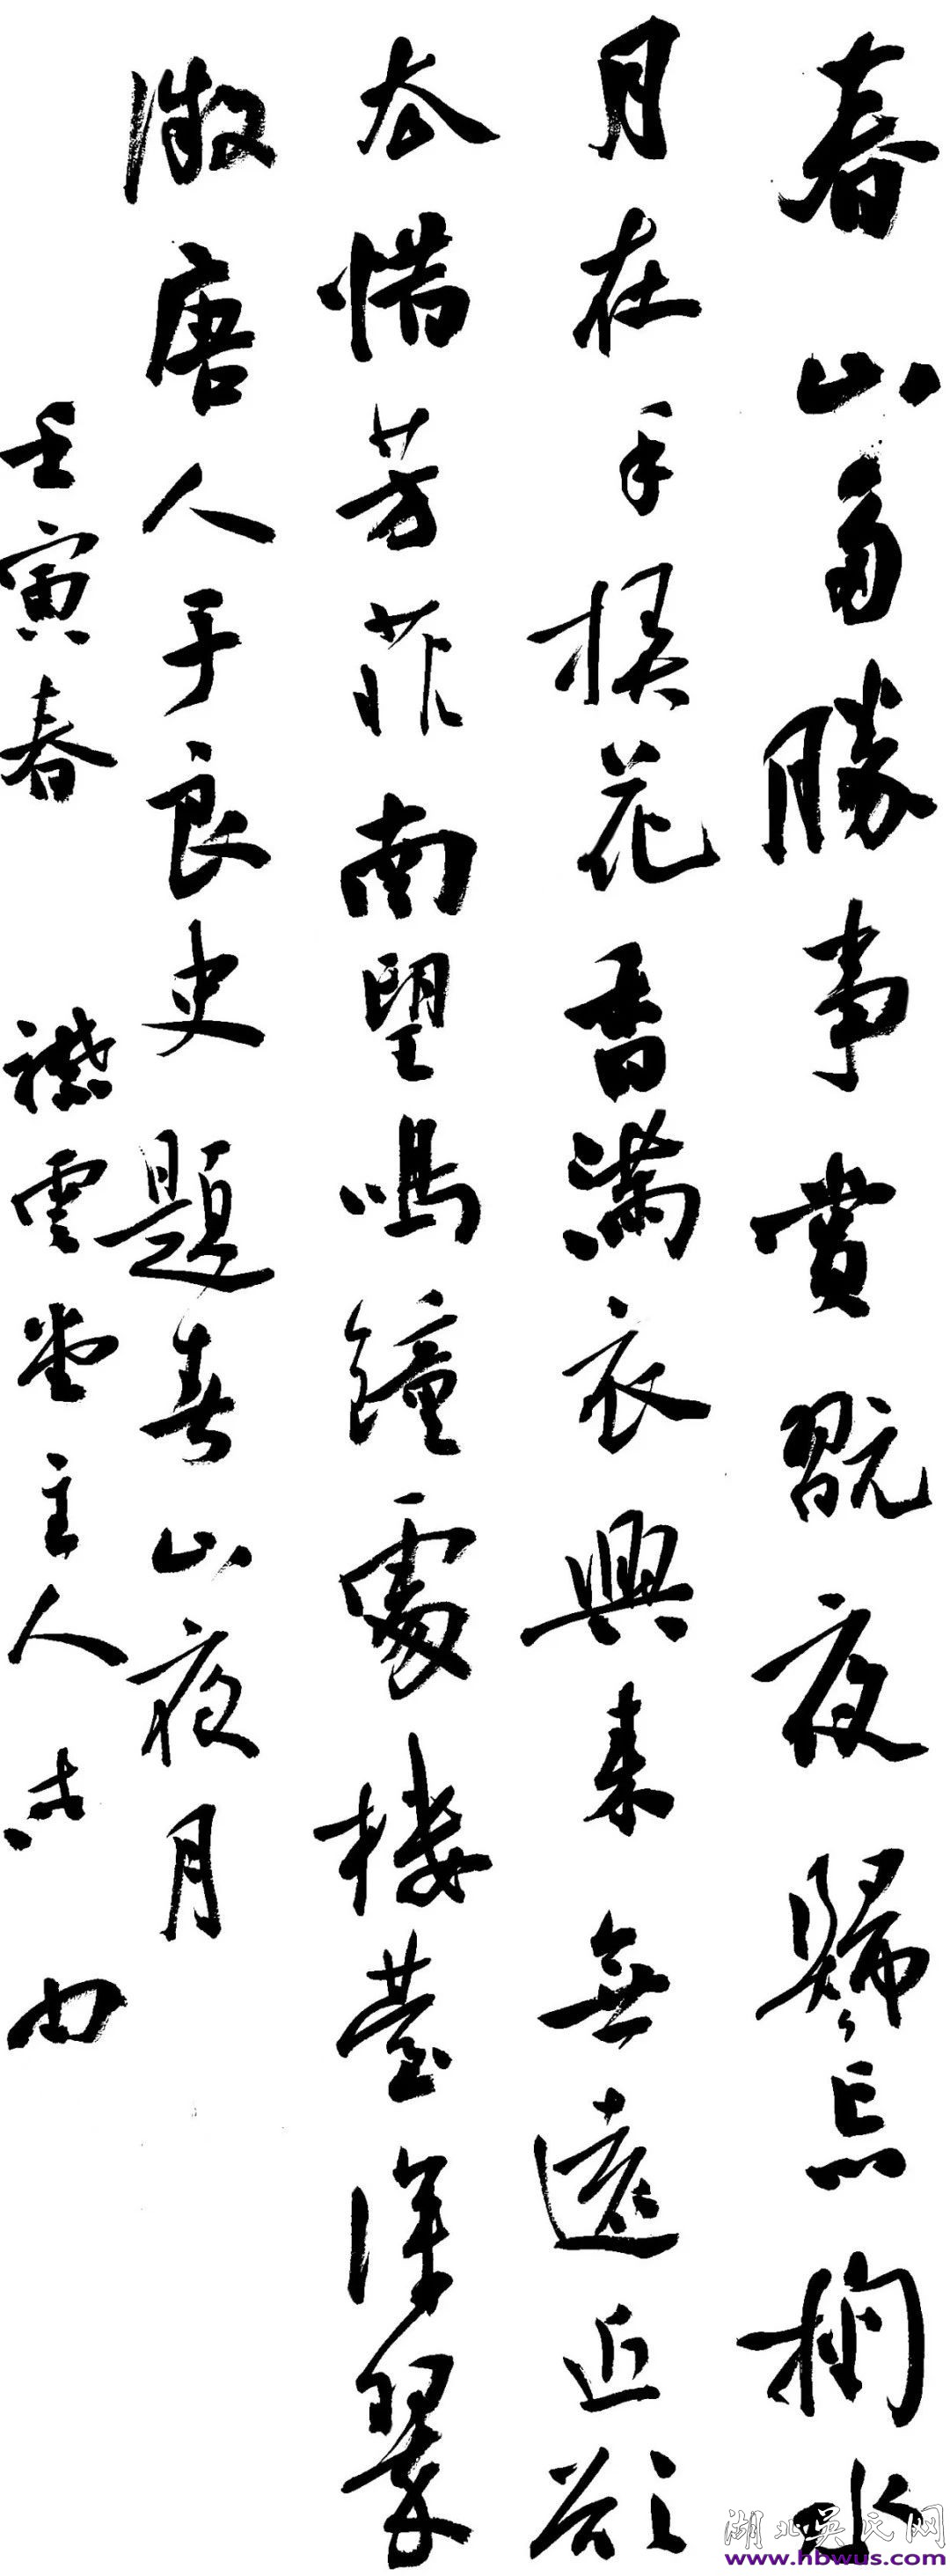 春山多勝事賞翫夜歸忘掬水
月在手弄花香滿衣興來無遠近欲
去惜芳菲南望鳴鐘處樓臺深翠
微唐人于良史題春山夜月
壬寅春 雲堂主人
湖北吴氏网
www.hbwus.com